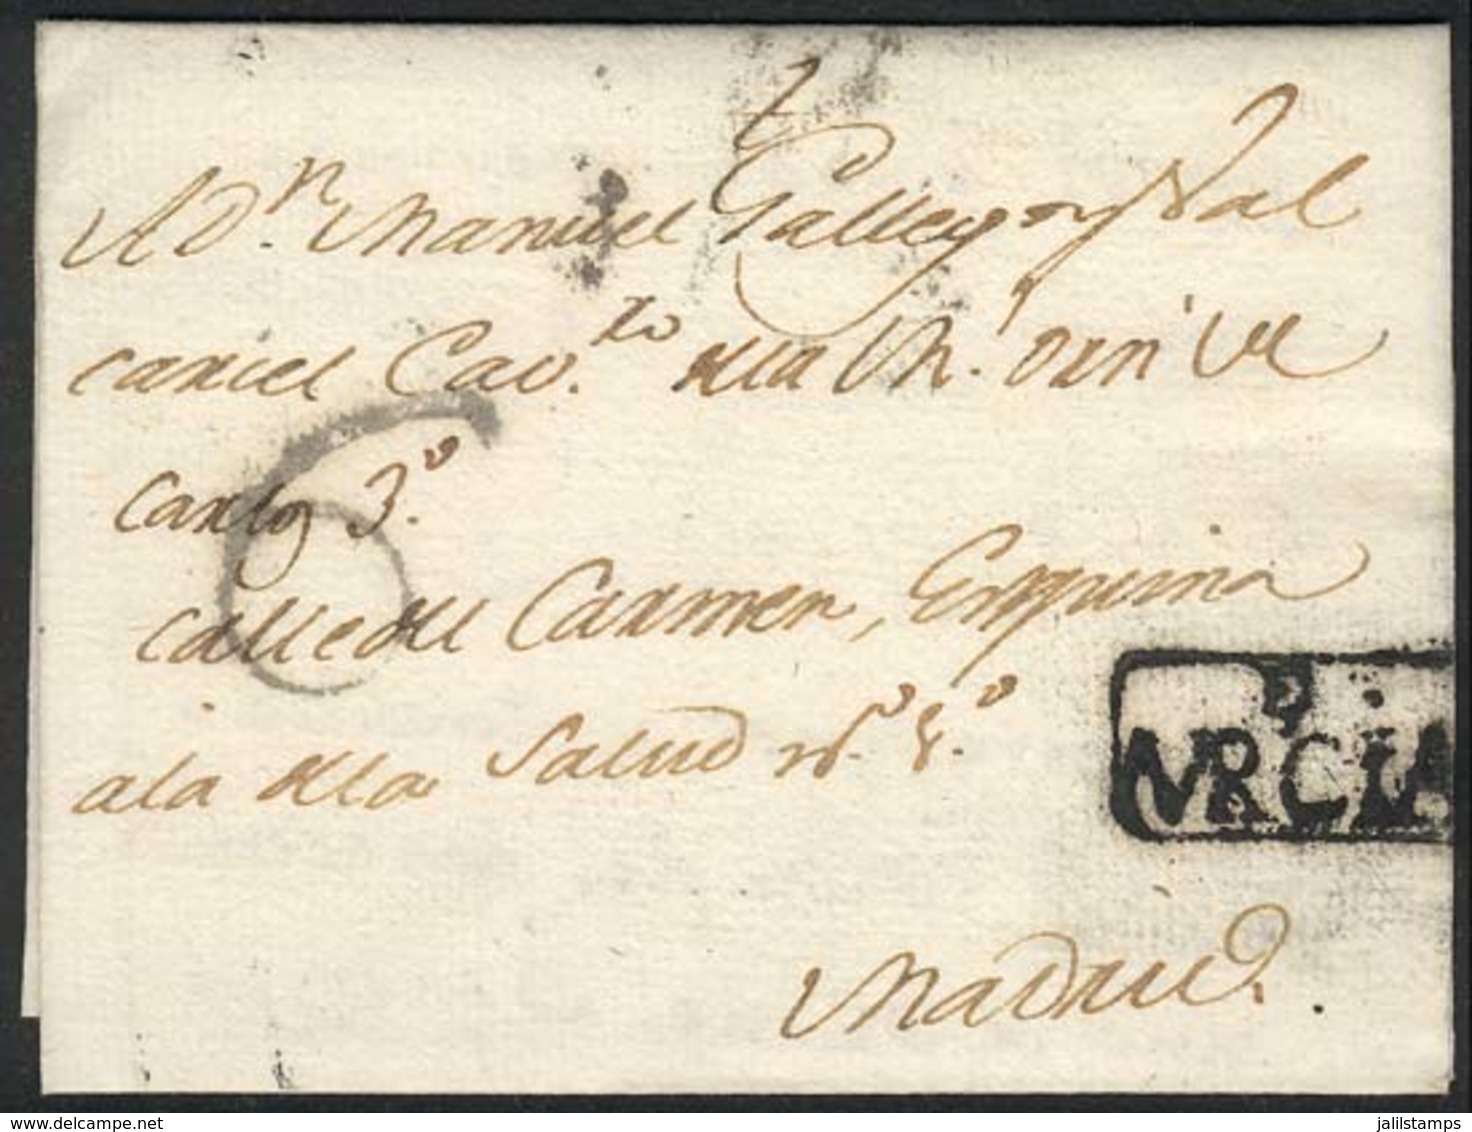 A Dn. Manuel Gallego y Val
carcel Cavro. dela Rl. orn. del
Carlos 3o.
calle del Carmen, Esquina
ala dela Salud no 8.o
B.
MURCIA
6
Madrid.
jalilstamps